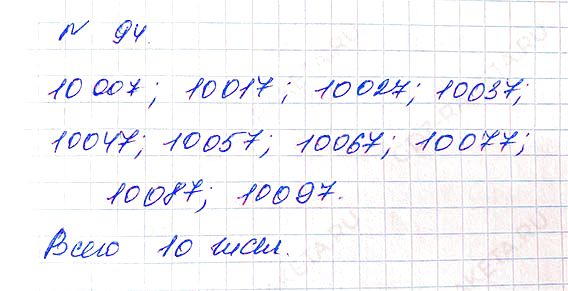 № 94.
10007; 10017; 10027; 10037;
10047; 10057; 10067; 10077;
10087; 10097.
Всего 10 чисел.